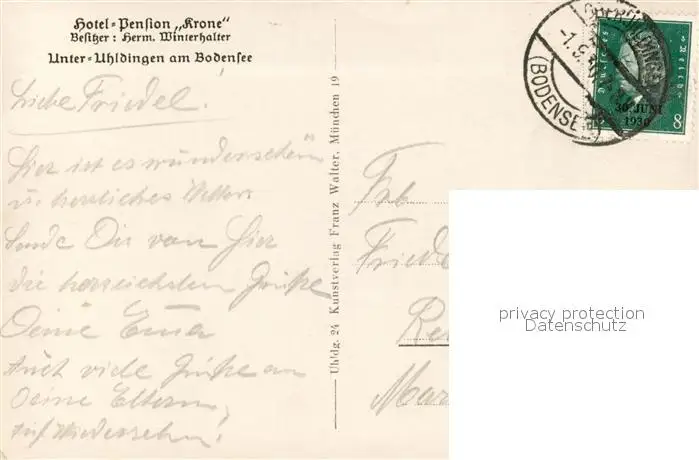 Hotel-Pension „Krone"
Besitzer: Herm. Winterhalter
Unter-Uhldingen am Bodensee
Liebe Friedel!
Hier ist es wunderschön
u. herrliches Wetter.
Sende Dir von hier
die herzlichsten Grüße
Deine Erna
Auch viele Grüße an
Deine Eltern,
Auf Wiedersehn!
Uhldg. 24 Kunstverlag Franz Walter, München 19
Frl.
Friede
(BODENSEE)
Deutsches
30. JUNI
1930
8
privacy protection
Datenschutz